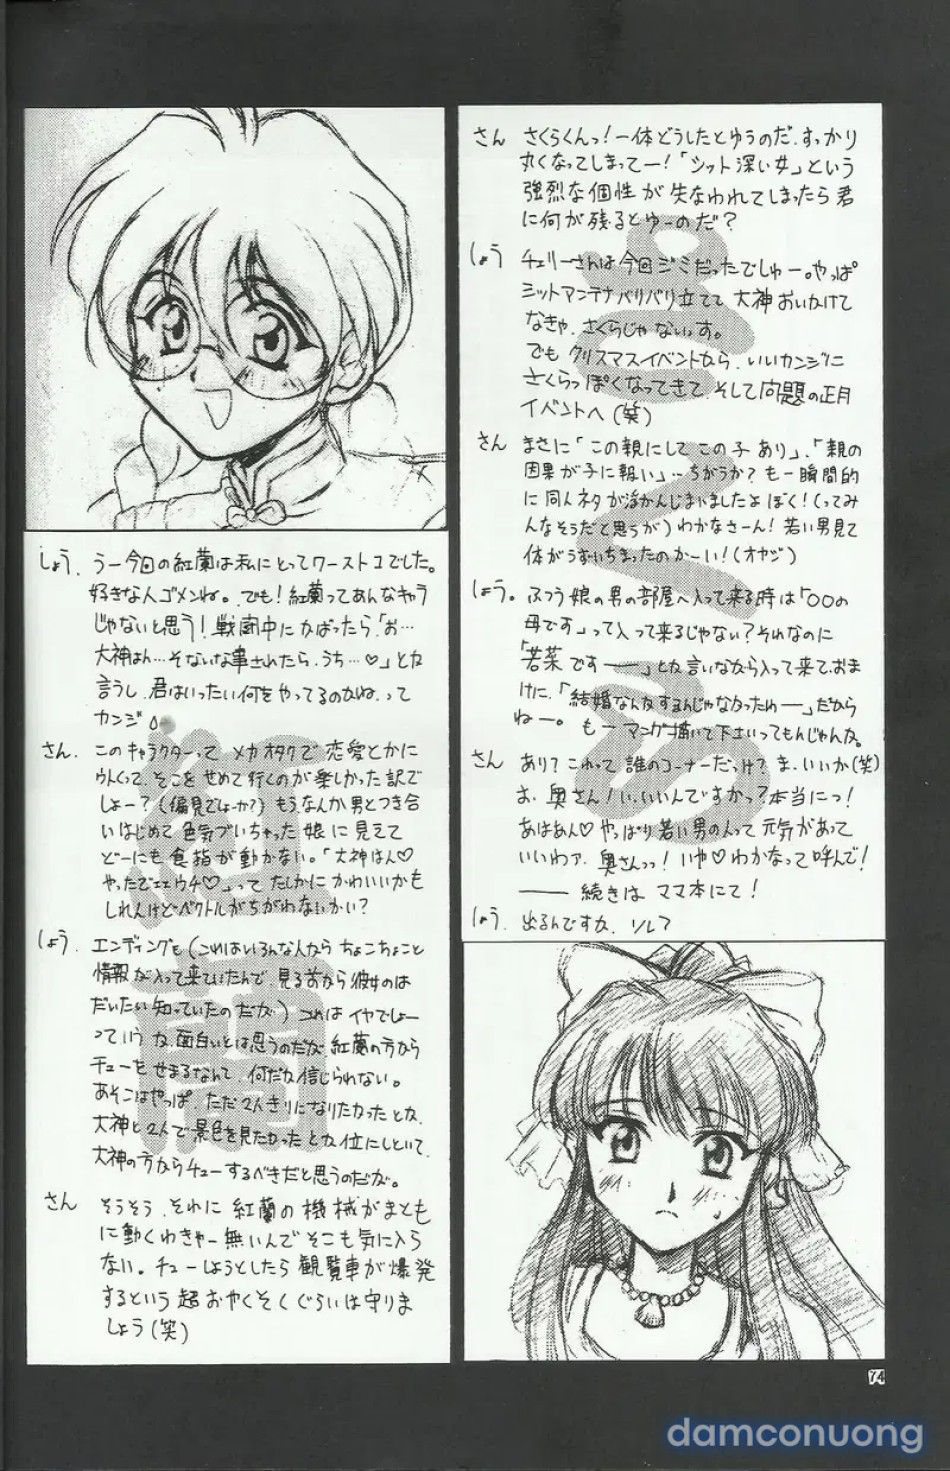 さん さくらくんっ!一体どうしたとゆうのだ.すっかり
丸くなってしまってー!「シット深い女」という
強烈な個性が失なわれてしまったら君
に何が残るとゆーのだ?
しょう チェリーさんは今回ジミだったでしゅー。やっぱ
ミットアンテナバリバリ立てて大神おいかけて
なきゃ.さくらじゃないっす。
でもクリスマスイベントから.いいカンジに
さくらっぽくなってきてそして問題の正月
イベントへ(笑)
さん まさに「この親にしてこの子あり」.「親の
因果が子に報い」…ちがうか?も一瞬間的
に同人ネタが浮かんじまいましたよぼく!(ってみ
んなそうだと思うが)わかなさーん!若い男見て
体がうずいちまったのかーい!(オヤジ)
しょう。ふつう娘の男の部屋へ入って来る時は「○○の
母です」って入って来るじゃない?それなのに
「若菜ですー」とか言いながら入って来て.おま
けに.「結婚なんかすんじゃなかったわー」だから
ねー。もーマンガ描いて下さいってもんじゃんか。
さん あり?これって誰のコーナーだっけ?ま.いいか(笑)
お.奥さん!い.いいんですかっ?本当にっ!
あはあん♡やっぱり若い男の人って元気があって
いいわァ.奥さんっっ!いや♡わかなって呼んで!
―― 続きはママ本にて!
しょう.出るんですか.ソレ?
しょう.うー今回の紅蘭は私にとってワースト1でした。
好きな人ゴメンね。でも!紅蘭ってあんなキャラ
じゃないと思う!戦闘中にかばったら「お…
大神はん…そないな事されたら.うち…♡」とか
言うし.君はいったい何をやってるのかね.って
カンジ。
さん.このキャラクターってメカオタクで恋愛とかに
うとくって.そこをせめて行くのが楽しかった訳で
しょー?(偏見でしょーか?)もうなんか男とつき合
いはじめて色気づいちゃった娘に見えて
どーにも食指が動かない。「大神はん♡
やったでエエウチ♡」ってたしかにかわいいかも
しれんけどベクトルがちがわないかい?
しょう.エンディングも(これはいろんな人からちょこちょこと
情報が入って来ていたんで.見る前から彼女のは
だいたい知っていたのだが)これはイヤでしょー
っていうか.面白いとは思うのだが紅蘭の方から
チューをせまるなんて.何だか信じられない。
あそこはやっぱ.ただ2人きりになりたかったとか.
大神と2人で景色を見たかったとか位にしといて.
大神の方からチューするべきだと思うのだが。
さん そうそう.それに紅蘭の機械がまとも
に動くわきゃー無いんでそこも気に入ら
ない。チューしようとしたら観覧車が爆発
するという超おやくそくぐらいは守りま
しょう(笑)
紅蘭
74
damconuong